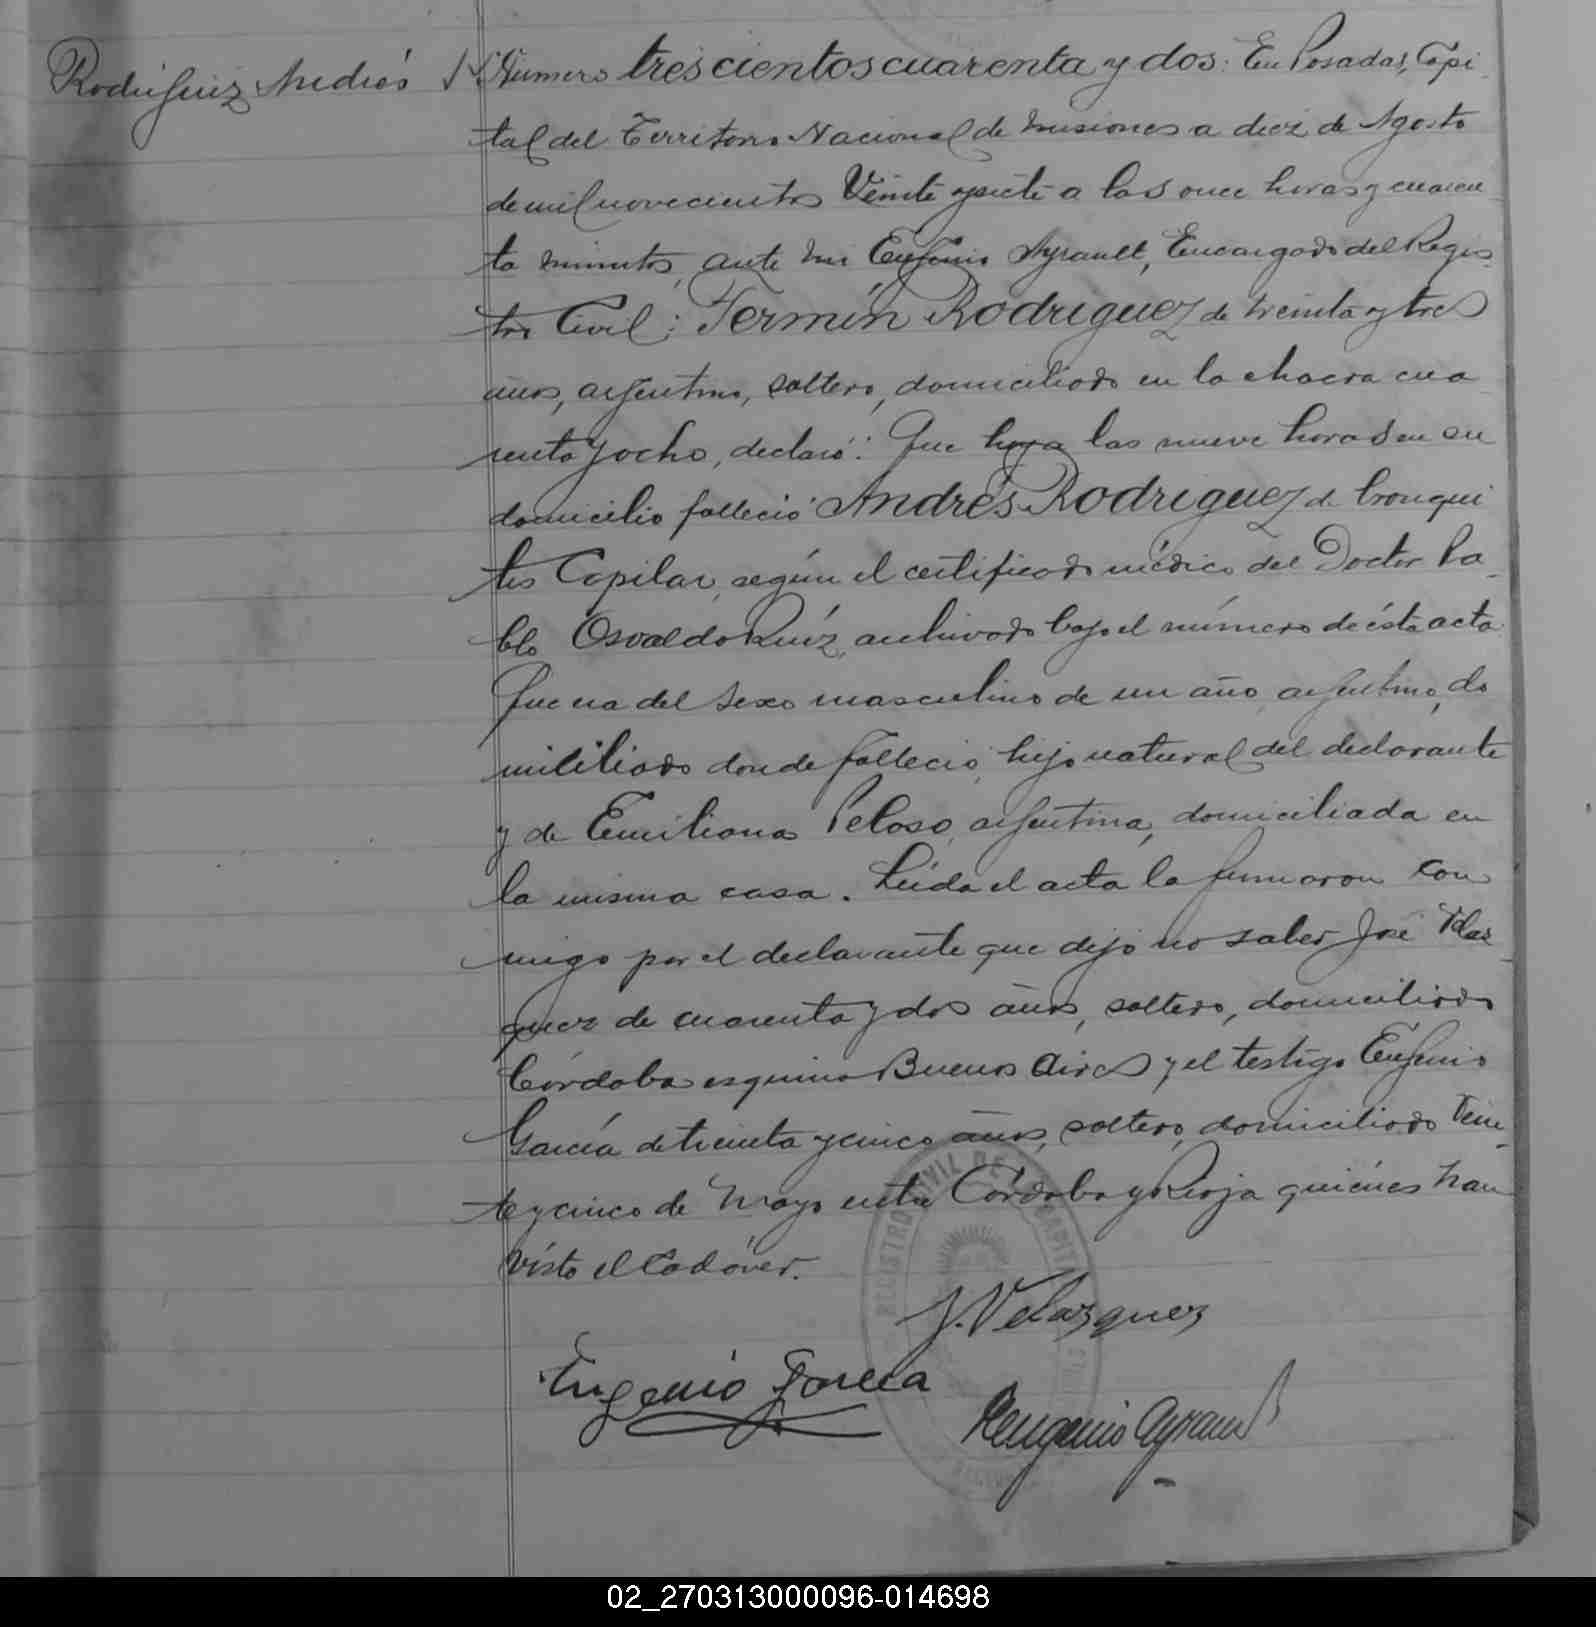 Rodriguez Andrés
Numero trescientos cuarenta y dos: En Posadas, Capi
tal del Territorio Nacional de Misiones a diez de Agosto
de mil novecientos Veinte y siete a las once horas y cuaren
ta minutos, ante mi Eugenio Ayrault, Encargado del Regis
tro Civil: Fermín Rodriguez de treinta y tres
años, argentino, soltero, domiciliado en la chacra cua
renta y ocho, declaró: Que hoy a las nueve horas en su
domicilio falleció Andrés Rodriguez de bronqui
tis Capilar, según el certificado médico del Doctor Pa
blo Osvaldo Ruíz, archivado bajo el número de ésta acta
Que era del sexo masculino de un año, argentino, do
mililiado donde falleció, hijo natural del declarante
y de Emiliana Peloso, argentina, domiciliada en
la misma casa. Leída el acta la firmaron con
migo por el declarante que dijo no saber José Velaz
quez de cuarenta y dos años, soltero, domiciliado
Córdoba esquina Buenos Aires y el testigo Eugenio
García de treinta y cinco años, soltero, domiciliado Vein
te y cinco de Mayo entre Córdoba y Rioja quiénes han
visto el Cadáver.
J. Velazquez
Eugenio Garcia
Eugenio Ayrault
REGISTRO CIVIL DE LA CAPITAL
02_270313000096-014698